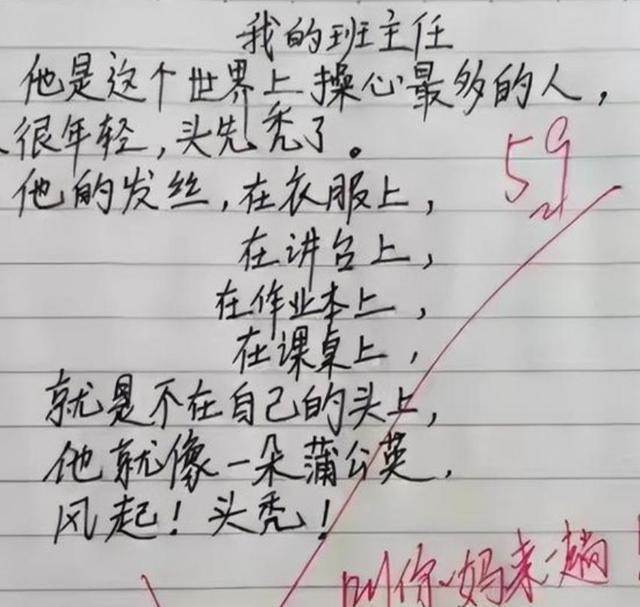 我的班主任
他是这个世界上操心最多的人，
人很年轻，头先秃了。
59
他的发丝，在衣服上，
在讲台上，
在作业本上，
在课桌上，
就是不在自己的头上，
他就像一朵蒲公英，
风起！头秃！
叫你妈来一趟！